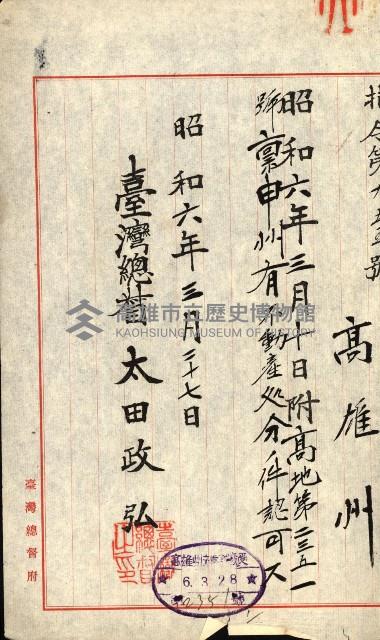 指令第九五三號
高雄州
昭和六年三月十日附高地第二三五一
號稟申州有不動產処分ノ件認可ス
昭和六年三月二十七日
臺灣總督 太田政弘
臺灣總督之印
6.3.28
臺灣總督府
高雄市立歷史博物館
KAOHSIUNG MUSEUM OF HISTORY